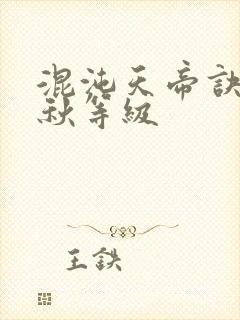 混沌天帝訣
秋等級
王鉄